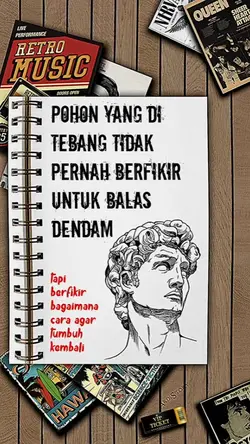 LIVE
PERFORMANCE
RETRO
MUSIC
DOORS OPEN
QUEEN
POHON YANG DI
TEBANG TIDAK
PERNAH BERFIKIR
UNTUK BALAS
DENDAM
tapi
berfikir
bagaimana
cara agar
tumbuh
kembali
VIP
TICKET